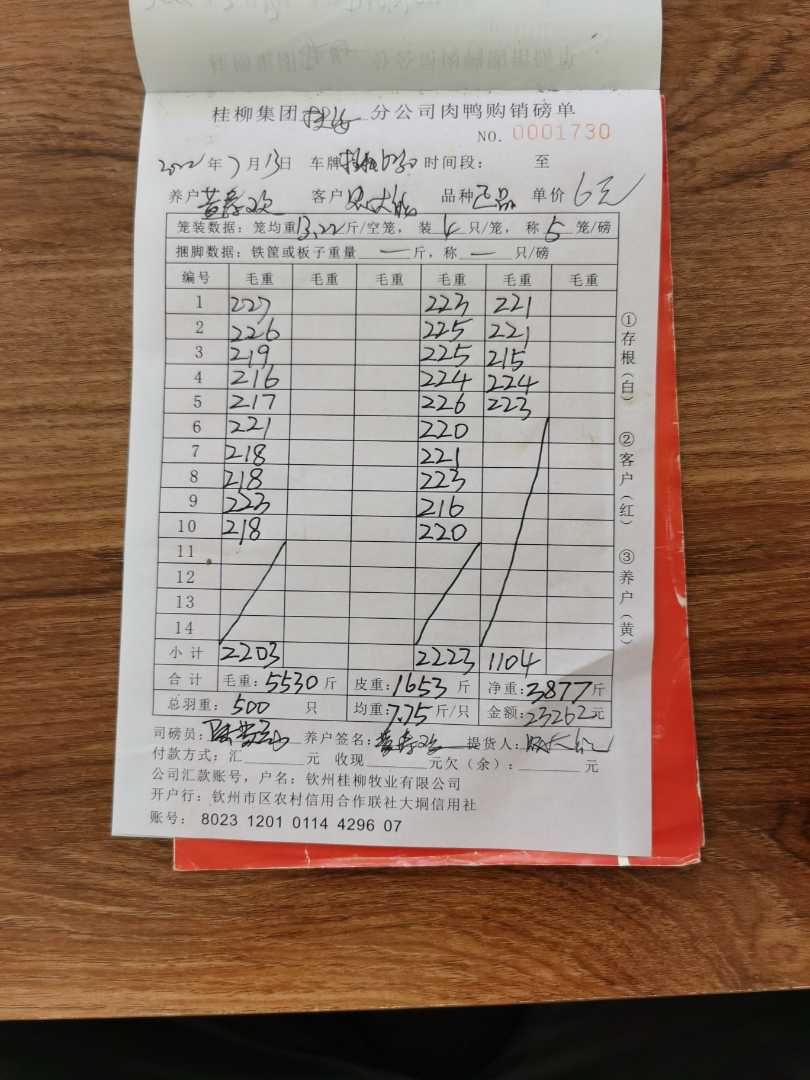 桂柳集团 分公司肉鸭购销磅单
NO. 0001730
2022年7月13日 车牌 时间段： 至
养户 黄 客户 品种 正品 单价 6元
笼装数据：笼均重13.22斤/空笼， 装 4 只/笼， 称 5 笼/磅
捆脚数据：铁筐或板子重量 — 斤，称 — 只/磅
编号 毛重 毛重 毛重 毛重 毛重 毛重
1 227 223 221
2 226 225 221
3 219 225 215
4 216 224 224
5 217 226 223
6 221 220
7 218 221
8 218 223
9 223 216
10 218 220
11
12
13
14
小计 2203 2223 1104
合计 毛重：5530斤 皮重：1653斤 净重：3877斤
总羽重：500 只 均重：7.75斤/只 金额：23262元
司磅员： 养户签名： 提货人：
付款方式：汇 元 收现 元欠（余）： 元
公司汇款账号，户名：钦州桂柳牧业有限公司
开户行：钦州市区农村信用合作联社大垌信用社
账号： 8023 1201 0114 4296 07
①存根（白）
②客户（红）
③养户（黄）